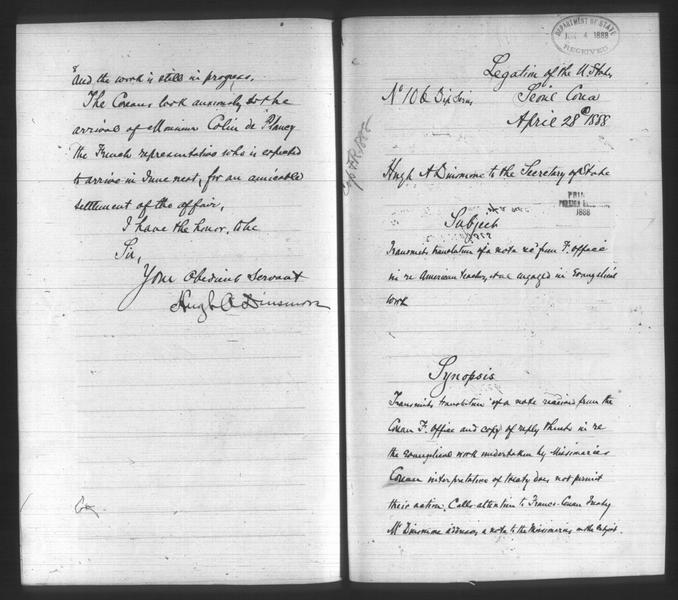 and the work is still in progress.
The Coreans look anxiously to the
arrival of Monsieur Colin de Plancy
the French representative who is expected
to arrive in June next, for an amicable
settlement of the affair.
I have the honor, to be
Sir,
Your Obedient Servant
Hugh A Dinsmore
DEPARTMENT OF STATE
4 1888
RECEIVED
Legation of the U. States
No 106 Dip Series
Seoul Corea
April 28th 1888
Hugh A Dinsmore to the Secretary of State
1888
Subject
Transmits translation of a note rec'd from F. Office
in re American teachers, engaged in Evangelical
work
Synopsis
Transmits translation of a note received from the
Corean F. Office and copy of reply thereto in re
the evangelical work undertaken by Missionaries
Corean interpretation of treaty does not permit
their action. Calls attention to Franco-Corean treaty
Mr Dinsmore addresses a note to the Missionaries on the subject.